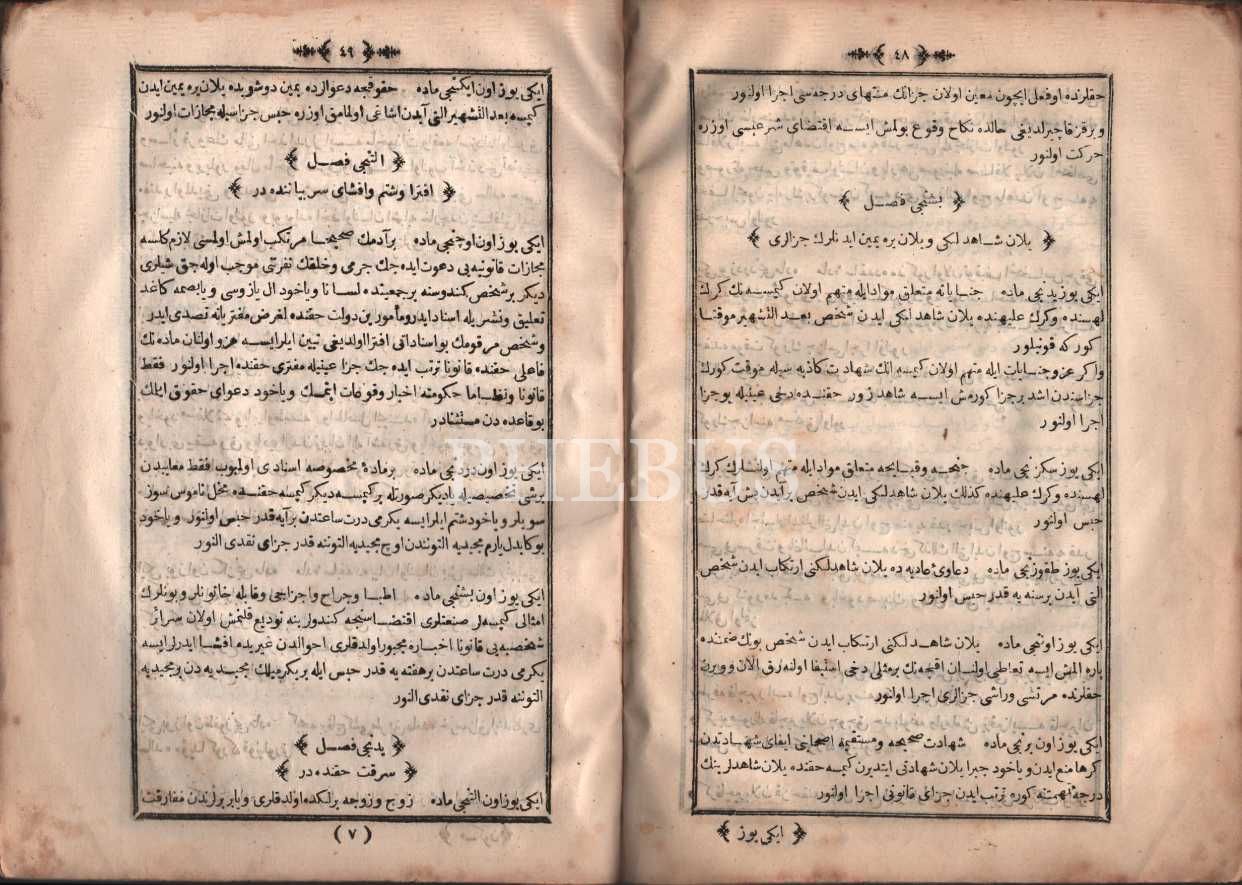 ٤٨
حقلرنده او فعل ایچون معین اولان جزانك منتهای درجه سی اجرا اولنور
و بر قز قاچیرلدیغی حالده نكاح وقوع بولمش ایسه اقتضای شرعیسی اوزره
حركت اولنور
بشنجی فصل
یلان شاهدلكی و یلان یره یمین ایدنلرك جزالری
ایكی یوز یدنجی ماده جنایاته متعلق موادایله متهم اولان كیمسه نك كرك
لهسنده و كرك علیهنده یلان شاهدلكی ایدن شخص بعد التشهیر موقتا
كوركه قونیلور
و اكر عزو جنایات ایله متهم اولان كیمسه انك شهادت كاذبه سیله موقت كورك
جزاسندن اشد بر جزا كورمش ایسه شاهد زور حقنده دخی عینیله بو جزا
اجرا اولنور
ایكی یوز سكزنجی ماده جنحه و قباحه متعلق موادایله متهم اولنلرك كرك
لهسنده و كرك علیهنده كذلك یلان شاهدلكی ایدن شخص بر آیدن بش آیه قدر
حبس اولنور
ایكی یوز طقوزنجی ماده دعاوئ عادیه ده یلان شاهدلكنی ارتكاب ایدن شخص
التی آیدن بر سنه یه قدر حبس اولنور
ایكی یوز اوننجی ماده یلان شاهدلكنی ارتكاب ایدن شخص بونك ضمننده
پاره المش ایسه تعاطی اولنان اقچه نك بر مثلی دخی استیفا اولنه رق الان و ویرن
حقلرنده مرتشی و راشی جزالری اجرا اولنور
ایكی یوز اون برنجی ماده شهادت صحیحه و مستقیمه اصحابنی ایفای شهادتدن
كرها منع ایدن و یاخود جبرا یلان شهادتی ایتدیرن كیمسه حقنده یلان شاهدلرینك
درجۀ تهمتنه كوره ترتب ایدن جزای قانونی اجرا اولنور
ایكی یوز
٤٩
ایكی یوز اون ایكنجی ماده حقوقجه دعوالرده یمین دوشوبده یلان یره یمین ایدن
كیمسه بعد التشهیر التی آیدن اشاغی اولمامق اوزره حبس جزاسیله مجازات اولنور
التنجی فصل
افترا و شتم و افشای سر بیاننده در
ایكی یوز اون اوچنجی ماده بر آدمك صحیحا مرتكب اولمش اولمسی لازم كلسه
مجازات قانونیه یی دعوت ایده جك جرمی و خلقك نفرتنی موجب اوله جق شیلری
دیكر بر شخص كندوسنه بر جمعیتده لسانا و یاخود ال یازوسی و یا بصمه كاغد
تعلیق و نشریله اسناد ایدر و مأمورین دولت حقنده لغرض مفتریاته تصدی ایدر
و شخص مرقومك بو اسناداتی افترا اولدیغی تبین ایلر ایسه عزو اولنان ماده نك
فاعلی حقنده قانونا ترتب ایده جك جزا عینیله مفتری حقنده اجرا اولنور فقط
قانونا و نظاما حكومته اخبار وقوعات ایتمك و یاخود دعوای حقوق ایلمك
بو قاعده دن مستثنادر
ایكی یوز اون دردنجی ماده بر مادۀ مخصوصه اسنادی اولمیوب فقط معایبدن
برشی تخصیصیله یا دیكر صورتله بر كیمسه دیكر كیمسه حقنده مخل ناموس سوز
سویلر و یاخود شتم ایلر ایسه یكرمی درت ساعتدن بر آیه قدر حبس اولنور و یاخود
بوكا بدل یارم مجیدیه التونندن اوچ مجیدیه التوننه قدر جزای نقدی النور
ایكی یوز اون بشنجی ماده اطبا و جراح و اجزاجی و قابله خاتونلر و بونلرك
امثالی كیمسه لر صنعتلری اقتضاسنجه كندولرینه تودیع قلنمش اولان سرائر
شخصیه یی قانونا اخباره مجبور اولدقلری احوالدن غیریده افشا ایدرلر ایسه
یكرمی درت ساعتدن بر هفته یه قدر حبس ایله بر یكرمیلك مجیدیه دن بر مجیدیه
التوننه قدر جزای نقدی النور
یدنجی فصل
سرقت حقنده در
ایكی یوز اون التنجی ماده زوج و زوجه برلكده اولدقلری و یا بربرلرندن مفارقت
(٧)
PHEBUS